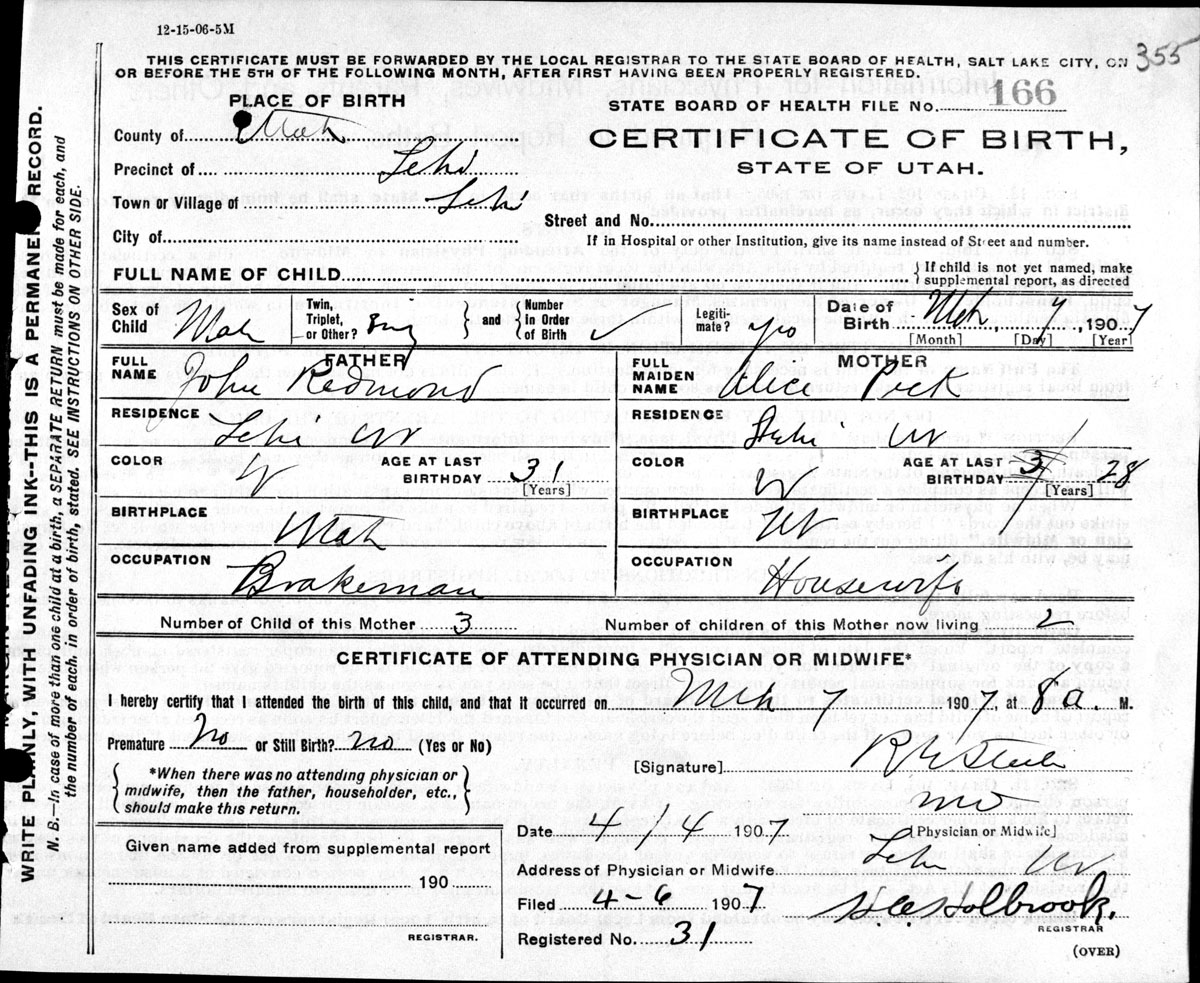 12-15-06-5M
355
THIS CERTIFICATE MUST BE FORWARDED BY THE LOCAL REGISTRAR TO THE STATE BOARD OF HEALTH, SALT LAKE CITY, ON
OR BEFORE THE 5TH OF THE FOLLOWING MONTH, AFTER FIRST HAVING BEEN PROPERLY REGISTERED.
PLACE OF BIRTH
STATE BOARD OF HEALTH FILE No. 166
County of Utah
CERTIFICATE OF BIRTH,
STATE OF UTAH.
Precinct of Lehi
Town or Village of Lehi
Street and No.
City of
If in Hospital or other Institution, give its name instead of Street and number.
FULL NAME OF CHILD
{If child is not yet named, make
supplemental report, as directed
Sex of Child Male
Twin, Triplet, or Other?
and
Number in Order of Birth
Legitimate? yes
Date of Birth Mch 7 1907
[Month] [Day] [Year]
FATHER
FULL NAME John Redmond
MOTHER
FULL MAIDEN NAME Alice Peck
RESIDENCE Lehi Ut
RESIDENCE Lehi Ut
COLOR W AGE AT LAST BIRTHDAY 31 [Years]
COLOR W AGE AT LAST BIRTHDAY 28 [Years]
BIRTHPLACE Utah
BIRTHPLACE Ut
OCCUPATION Brakeman
OCCUPATION Housewife
Number of Child of this Mother 3 Number of children of this Mother now living 2
CERTIFICATE OF ATTENDING PHYSICIAN OR MIDWIFE*
I hereby certify that I attended the birth of this child, and that it occurred on Mch 7 1907, at 8 a. M.
Premature No or Still Birth? No (Yes or No)
*When there was no attending physician or
midwife, then the father, householder, etc.,
should make this return.
[Signature] R E Steele
MD
[Physician or Midwife]
Date 4/4 1907
Address of Physician or Midwife Lehi Ut
Given name added from supplemental report
190
REGISTRAR.
Filed 4-6 1907
Holbrook.
REGISTRAR
Registered No. 31
(OVER)
WRITE PLAINLY, WITH UNFADING INK--THIS IS A PERMANENT RECORD.
N. B.—In case of more than one child at a birth, a SEPARATE RETURN must be made for each, and
the number of each, in order of birth, stated. SEE INSTRUCTIONS ON OTHER SIDE.